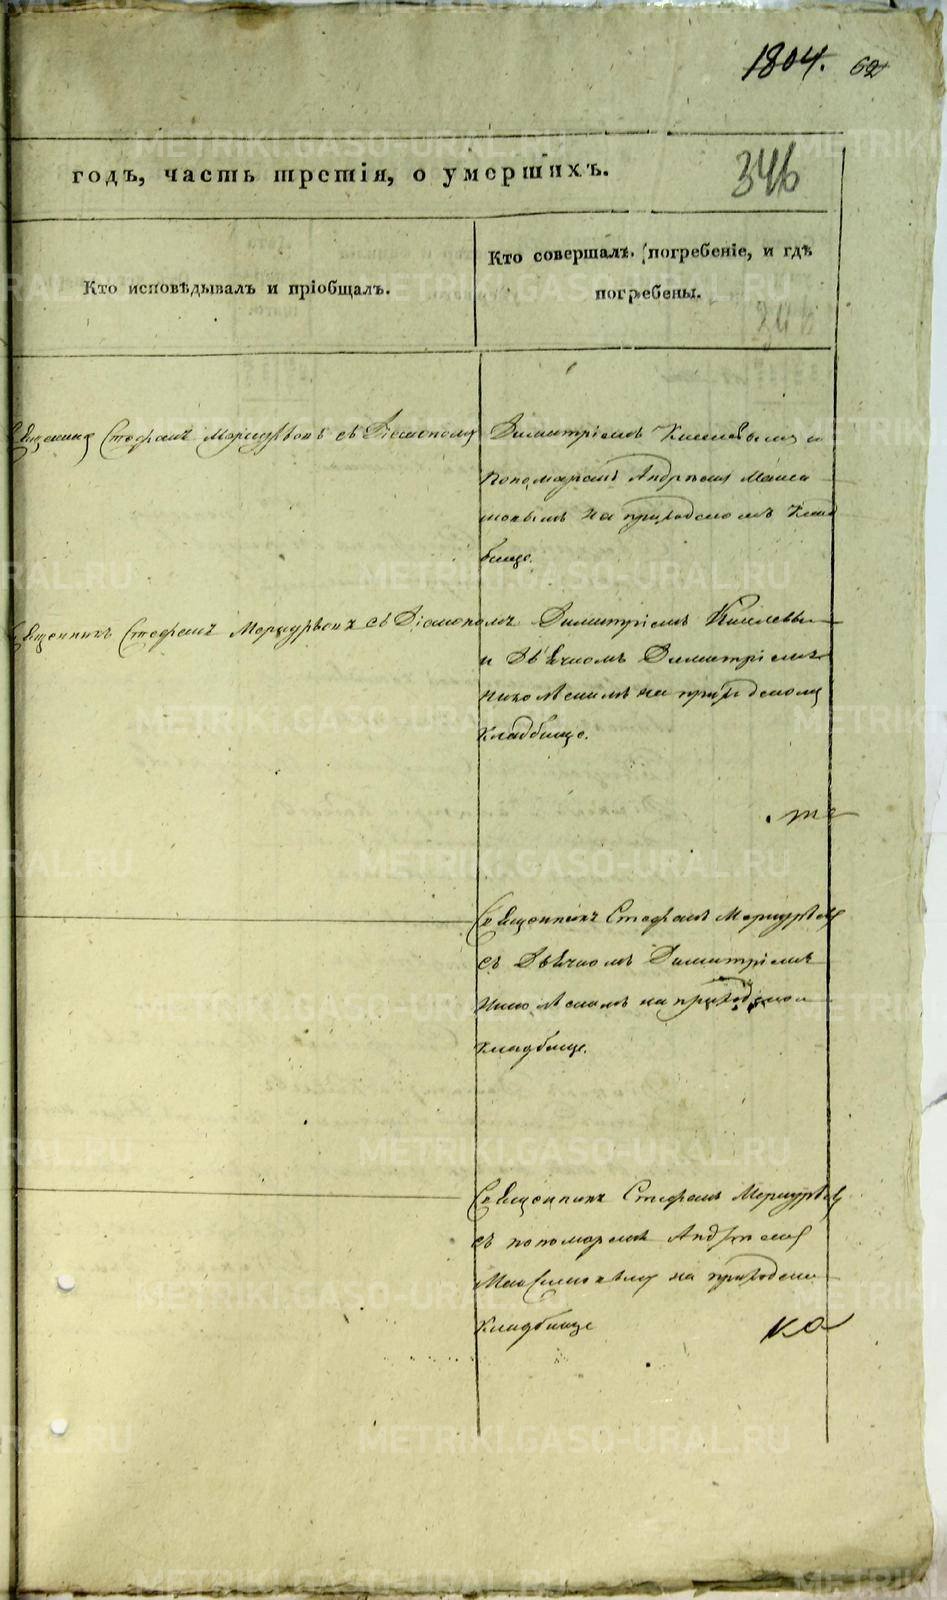 1804. 62
годъ, часть третія, о умершихъ. 346
Кто исповѣдывалъ и пріобщалъ.
Кто совершалъ погребеніе, и гдѣ
погребены.
Священникъ Стефанъ Меркурьевъ съ Діакономъ Димитріемъ Киселевымъ и
пономаремъ Андреемъ Макси
мовымъ на приходскомъ клад
бище.
Священникъ Стефанъ Меркурьевъ съ Діакономъ Димитріемъ Киселевы
и Дьячкомъ Димитріемъ
на приходскомъ
кладбище.
Священникъ Стефанъ Меркурьевъ
съ Дьячкомъ Димитріемъ
на приходском
кладбище.
Священникъ Стефанъ Меркурьевъ
съ пономаремъ Андреемъ
Максимовымъ на приходском
кладбище ка
METRIKI.GASO-URAL.RU